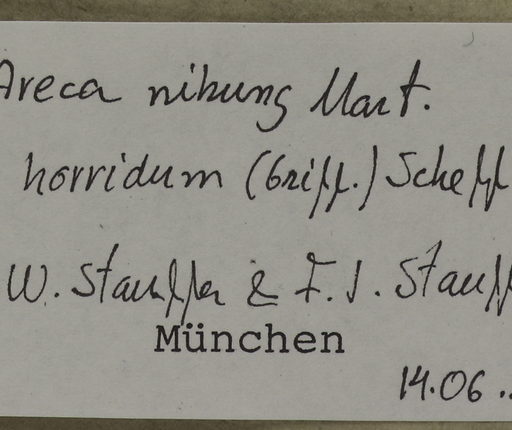 Areca nibung Mart.
horridum (Griff.) Scheff
W. Stauffer & F. J. Stauff
München
14.06..